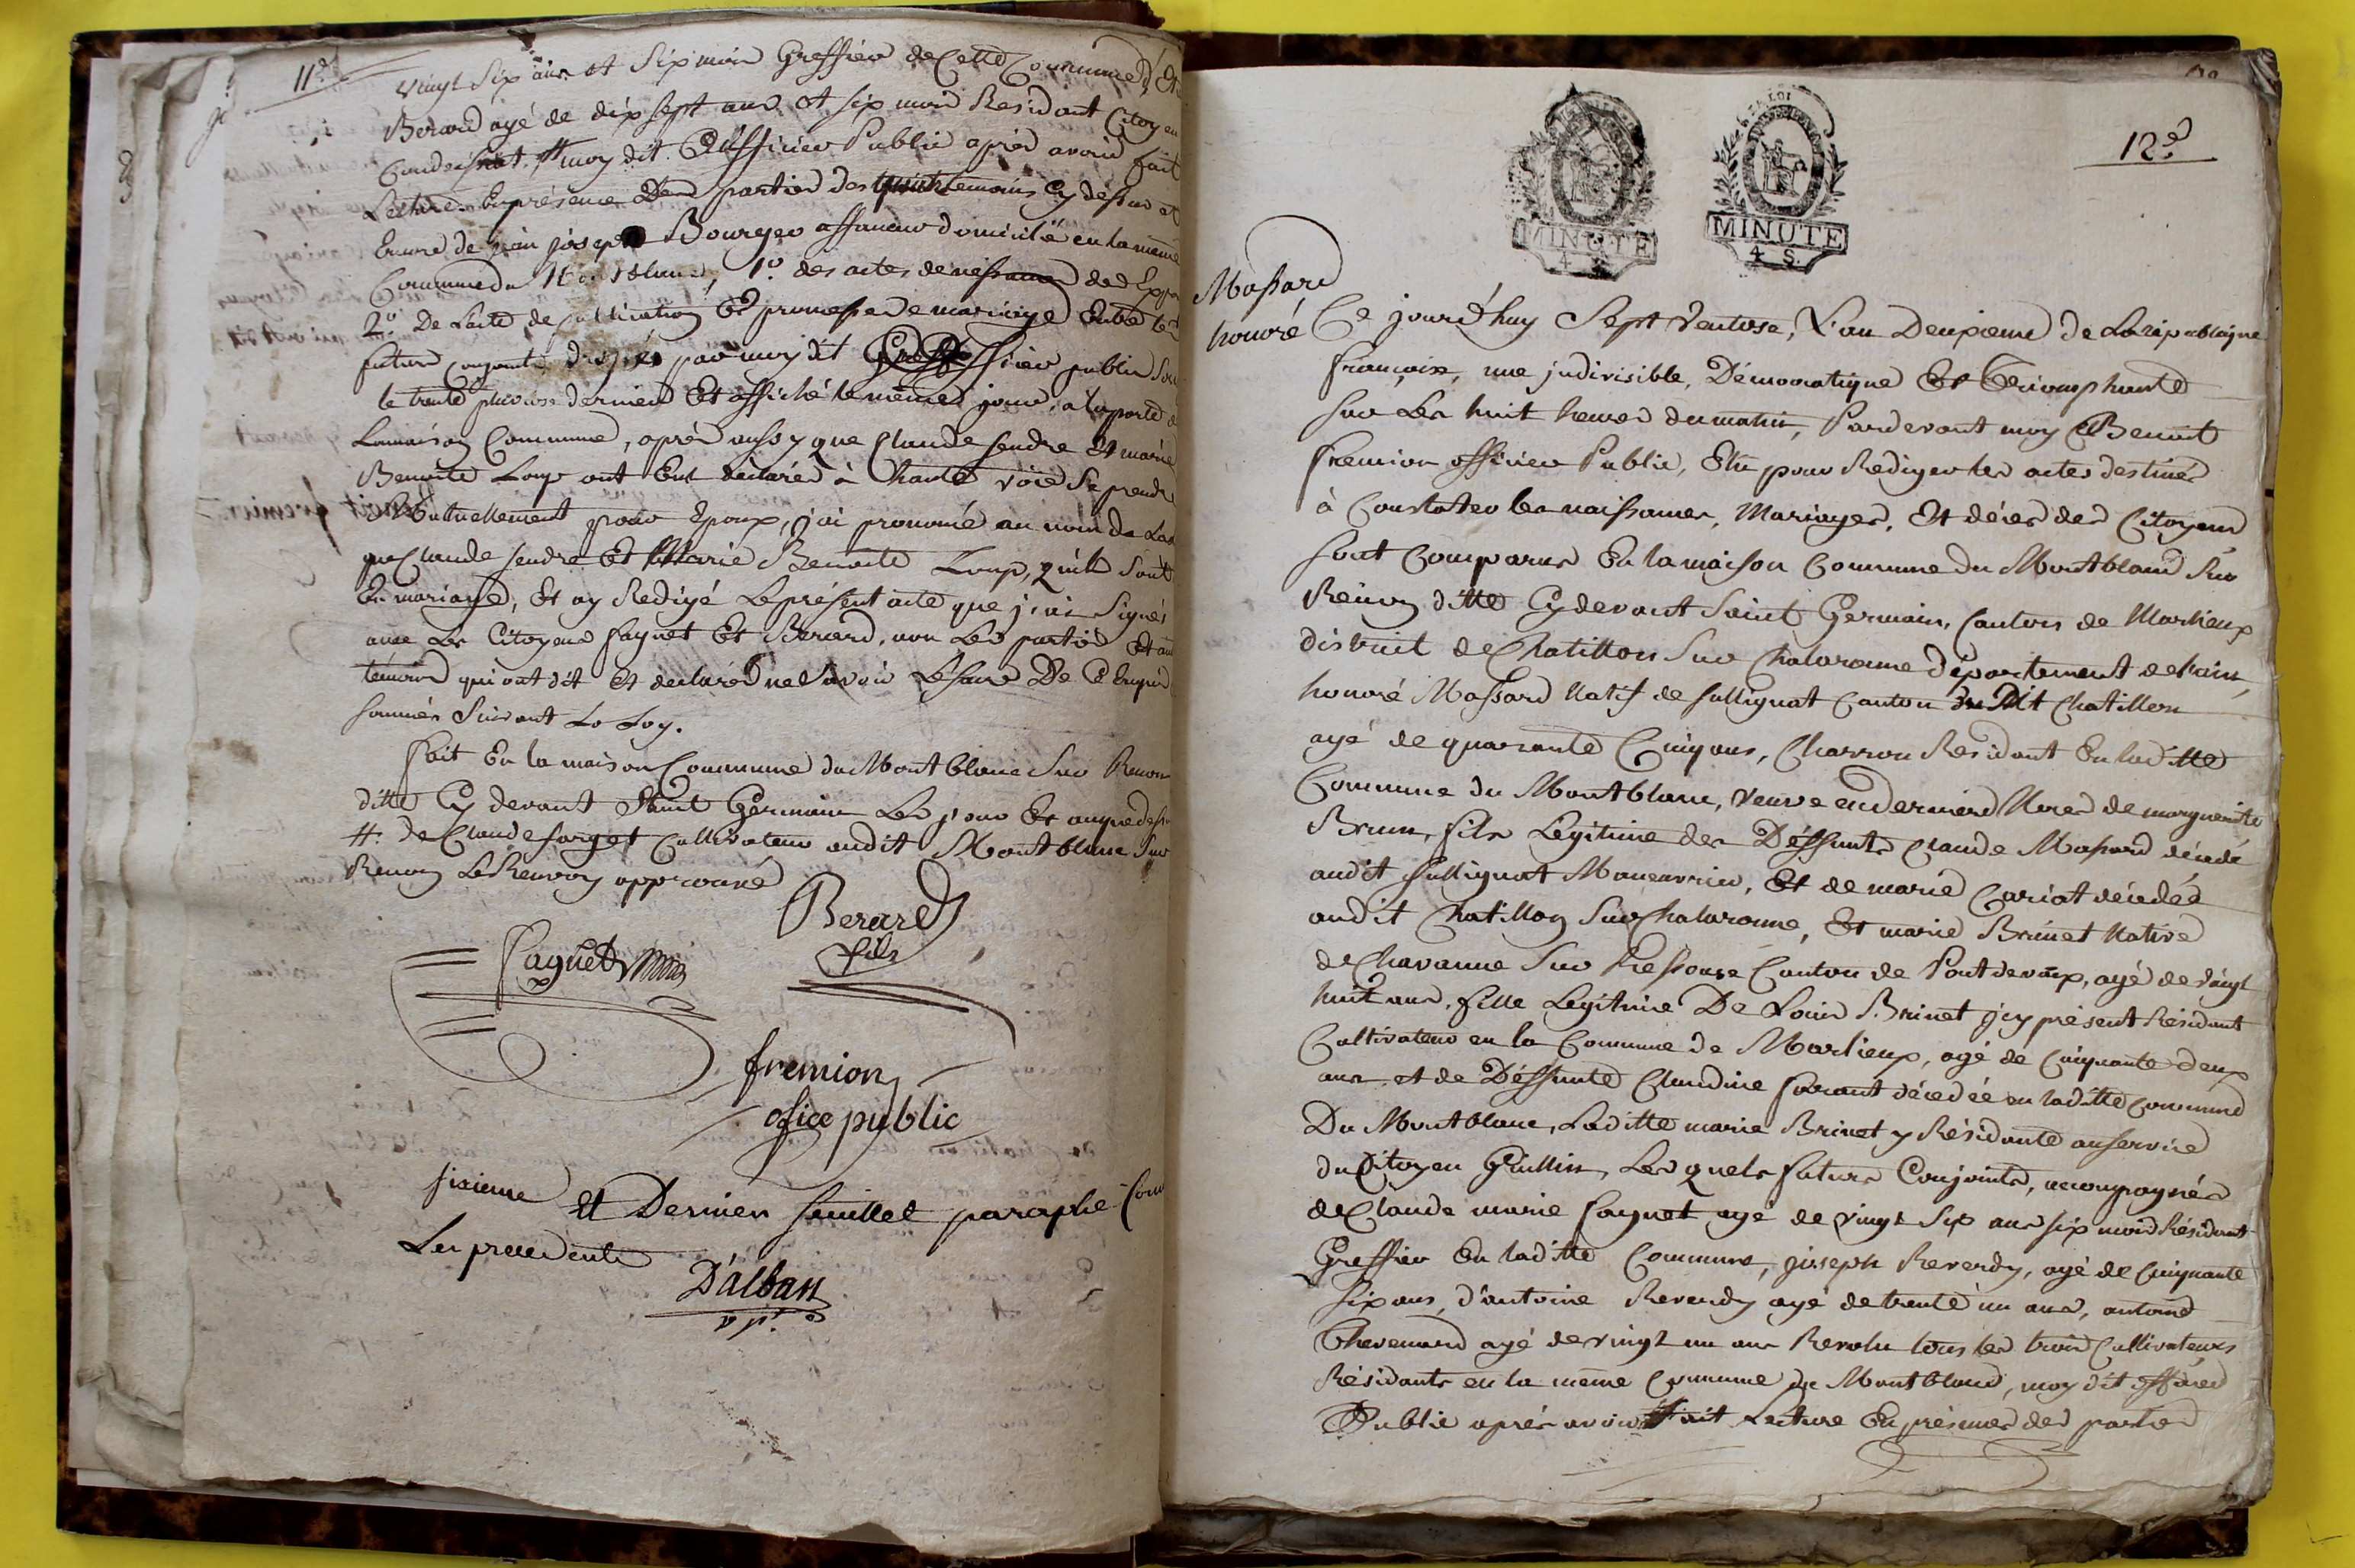 11e
vingt Six ans et Six mois Greffier de Cette Commune, Et
Berard agé de dix sept ans et six mois Residant Citoyen
Condeissiat. # moy dit Officier Public après avoir fait
Lecture En présence Des parties des temoins Cy dessus et
Encore de jean joseph Bourgeo affaneur domicilié en la meme
Commune du Montblanc, 1o. des actes de naissance des
2o. De L'acte de publication Et promesse de mariage Entre les
futurs conjoints dressé par moy dit Officier public
le trente pluviose dernier Et affiché le même jour, a la porte de
La maison Commune, après aussy que Claude sendre Et marie
Benoite Loup ont Eut déclarés à Haute voix Se prendre
Mutuellement pour Epoux, j'ai prononcé au nom de La
que Claude sendre Et Marie Benoite Loup, qu'ils sont
En mariage, Et ay Redigé Le présent acte que j'ai Signés
avec Les Citoyens faguet Et Berard, non Les parties Et
temoins qui ont dit Et declarés ne Savoir Le faire De Ce Enquis
sommés Suivant La Loy.
fait En la maison Commune du Montblanc Sur Renon
ditte Cy devant Saint Germain Les jour Et an que dessus
#. de Claude farget Cultivateur audit Montblanc Sur
Renon Le Renvoy approuvé
Berard
fils
faguet
fremion
ofice public
sixieme Et Dernier feuillet paraphé Comme
Les precedents
D'alban
12e
LA LOI
MINUTE
4 S.
MINUTE
4 S.
Massard
honoré
Ce jourd'huy Sept Ventose, L'an Deuxieme de La republique
françoise, une indivisible, Démocratique Et Triomphante
sur Les huit heures du matin, Pardevant moy Benoit
fremion officier Public, Elu pour Rediger les actes destinés
à Constater les naissances, Mariages, Et décès des Citoyens
sont Comparus En la maison Commune du Montblanc Sur
Renon ditte Cy devant Saint Germain, Canton de Marlieux
district de Chatillon Sur Chalaronne département de L'ain,
honoré Massard Natif de sullignat Canton du Dit Chatillon
agé de quarante Cinq ans, Charron Residant En laditte
Commune du Montblanc, Veuve en dernier Noces de marguerite
Brun, fils Legitime des Deffunts Claude Massard décédé
audit sullignat Manouvrier, Et de marie Cariat décédés
audit Chatillon Sur Chalaronne, Et marie Brinet Native
de Chavanne Sur Ressouze Canton de Pontdevaux, agé de vingt
huit ans, fille Legitime De Louis Brinet jcy présent Résidant
Cultivateur en la Commune de Marlieux, agé de Cinquante deux
ans, et de Déffunte Claudine décédée en laditte Commune
Du Montblanc, Laditte marie Brinet y Résidante au service
du Citoyen Guillin, Les quels futurs Conjoints, accompagnés
de Claude marie faguet agé de vingt Six ans six mois Résidant
Greffier En laditte Commune, joseph Reverdy, agé de Cinquante
Six ans, d'antoine Reverdy agé de trente un ans, antoine
Thevenard agé de vingt un ans Revolu tous les trois Cultivateurs
Résidants en la même Commune du Montblanc, moy dit officier
Public après avoir fait Lecture En présence des parties